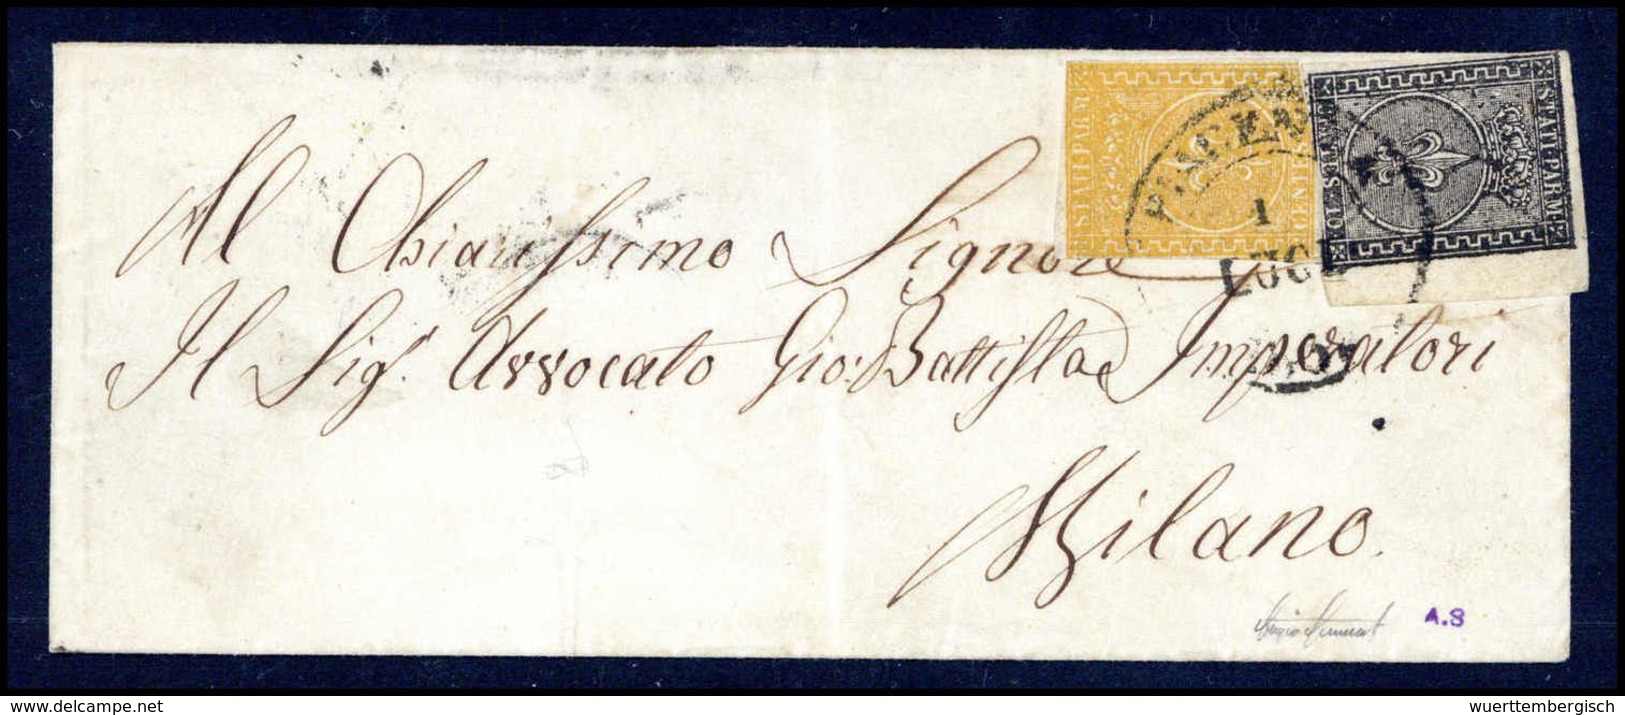 STATI PARM.
CENTESIMI
STATI PARM.
CENTES. 10
PIACENZA
1
LUGL
Al Chiarissimo Signore
Il Sigr. Avvocato Gio: Battista Imperatori
Milano.
A.S
www.delcampe.net
wuerttembergisch